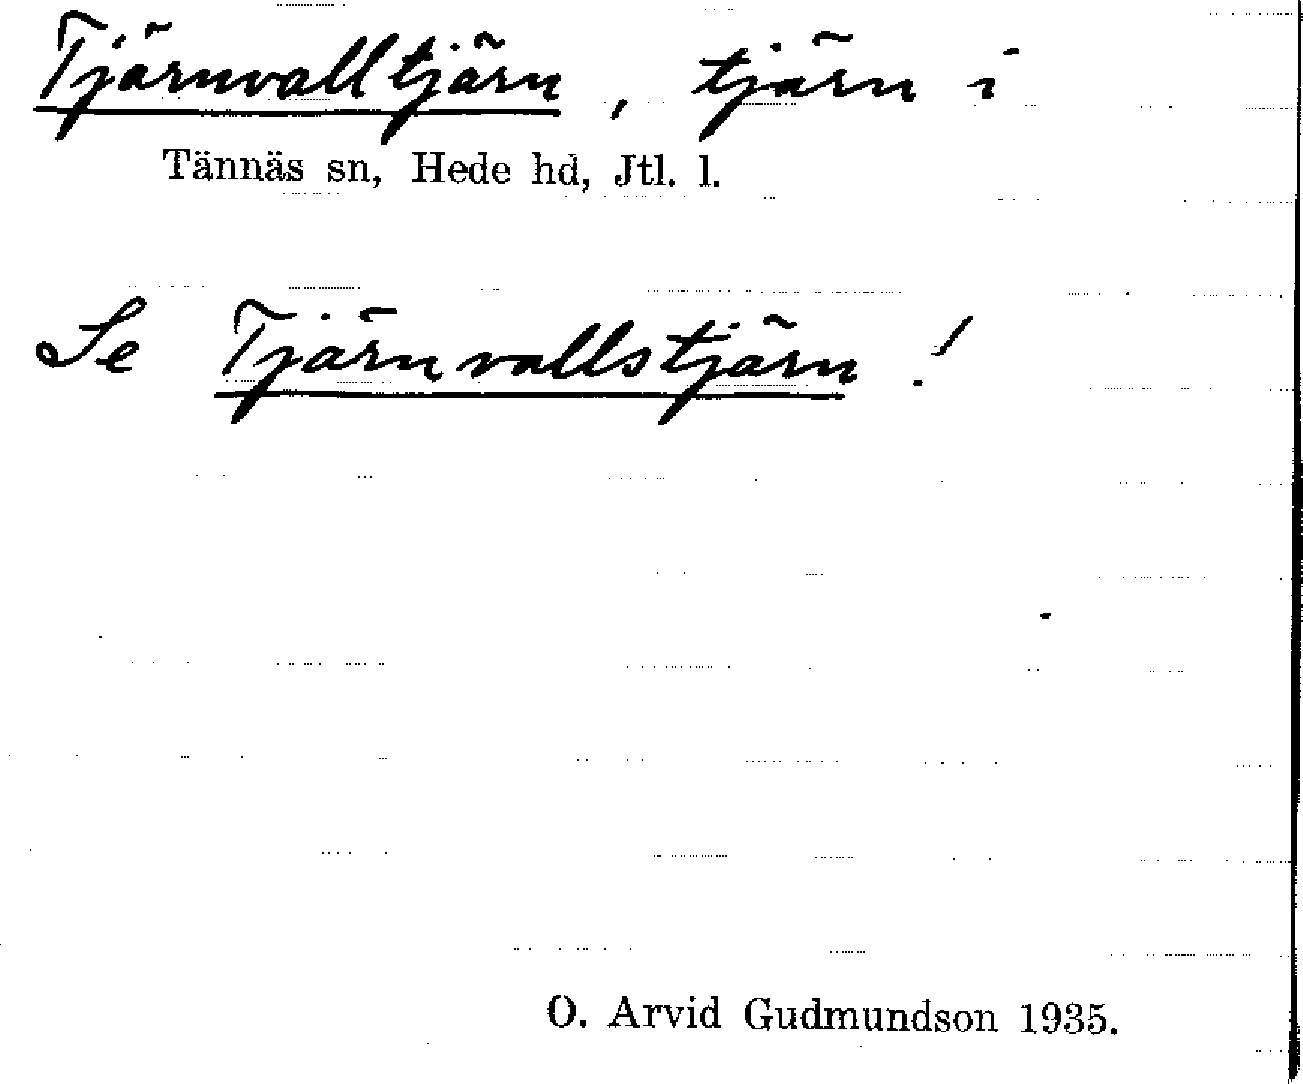 Tjärnvalltjärn, tjärn i
Tännäs sn, Hede hd, Jtl. l.
Se Tjärnvallstjärn!
O. Arvid Gudmundson 1935.